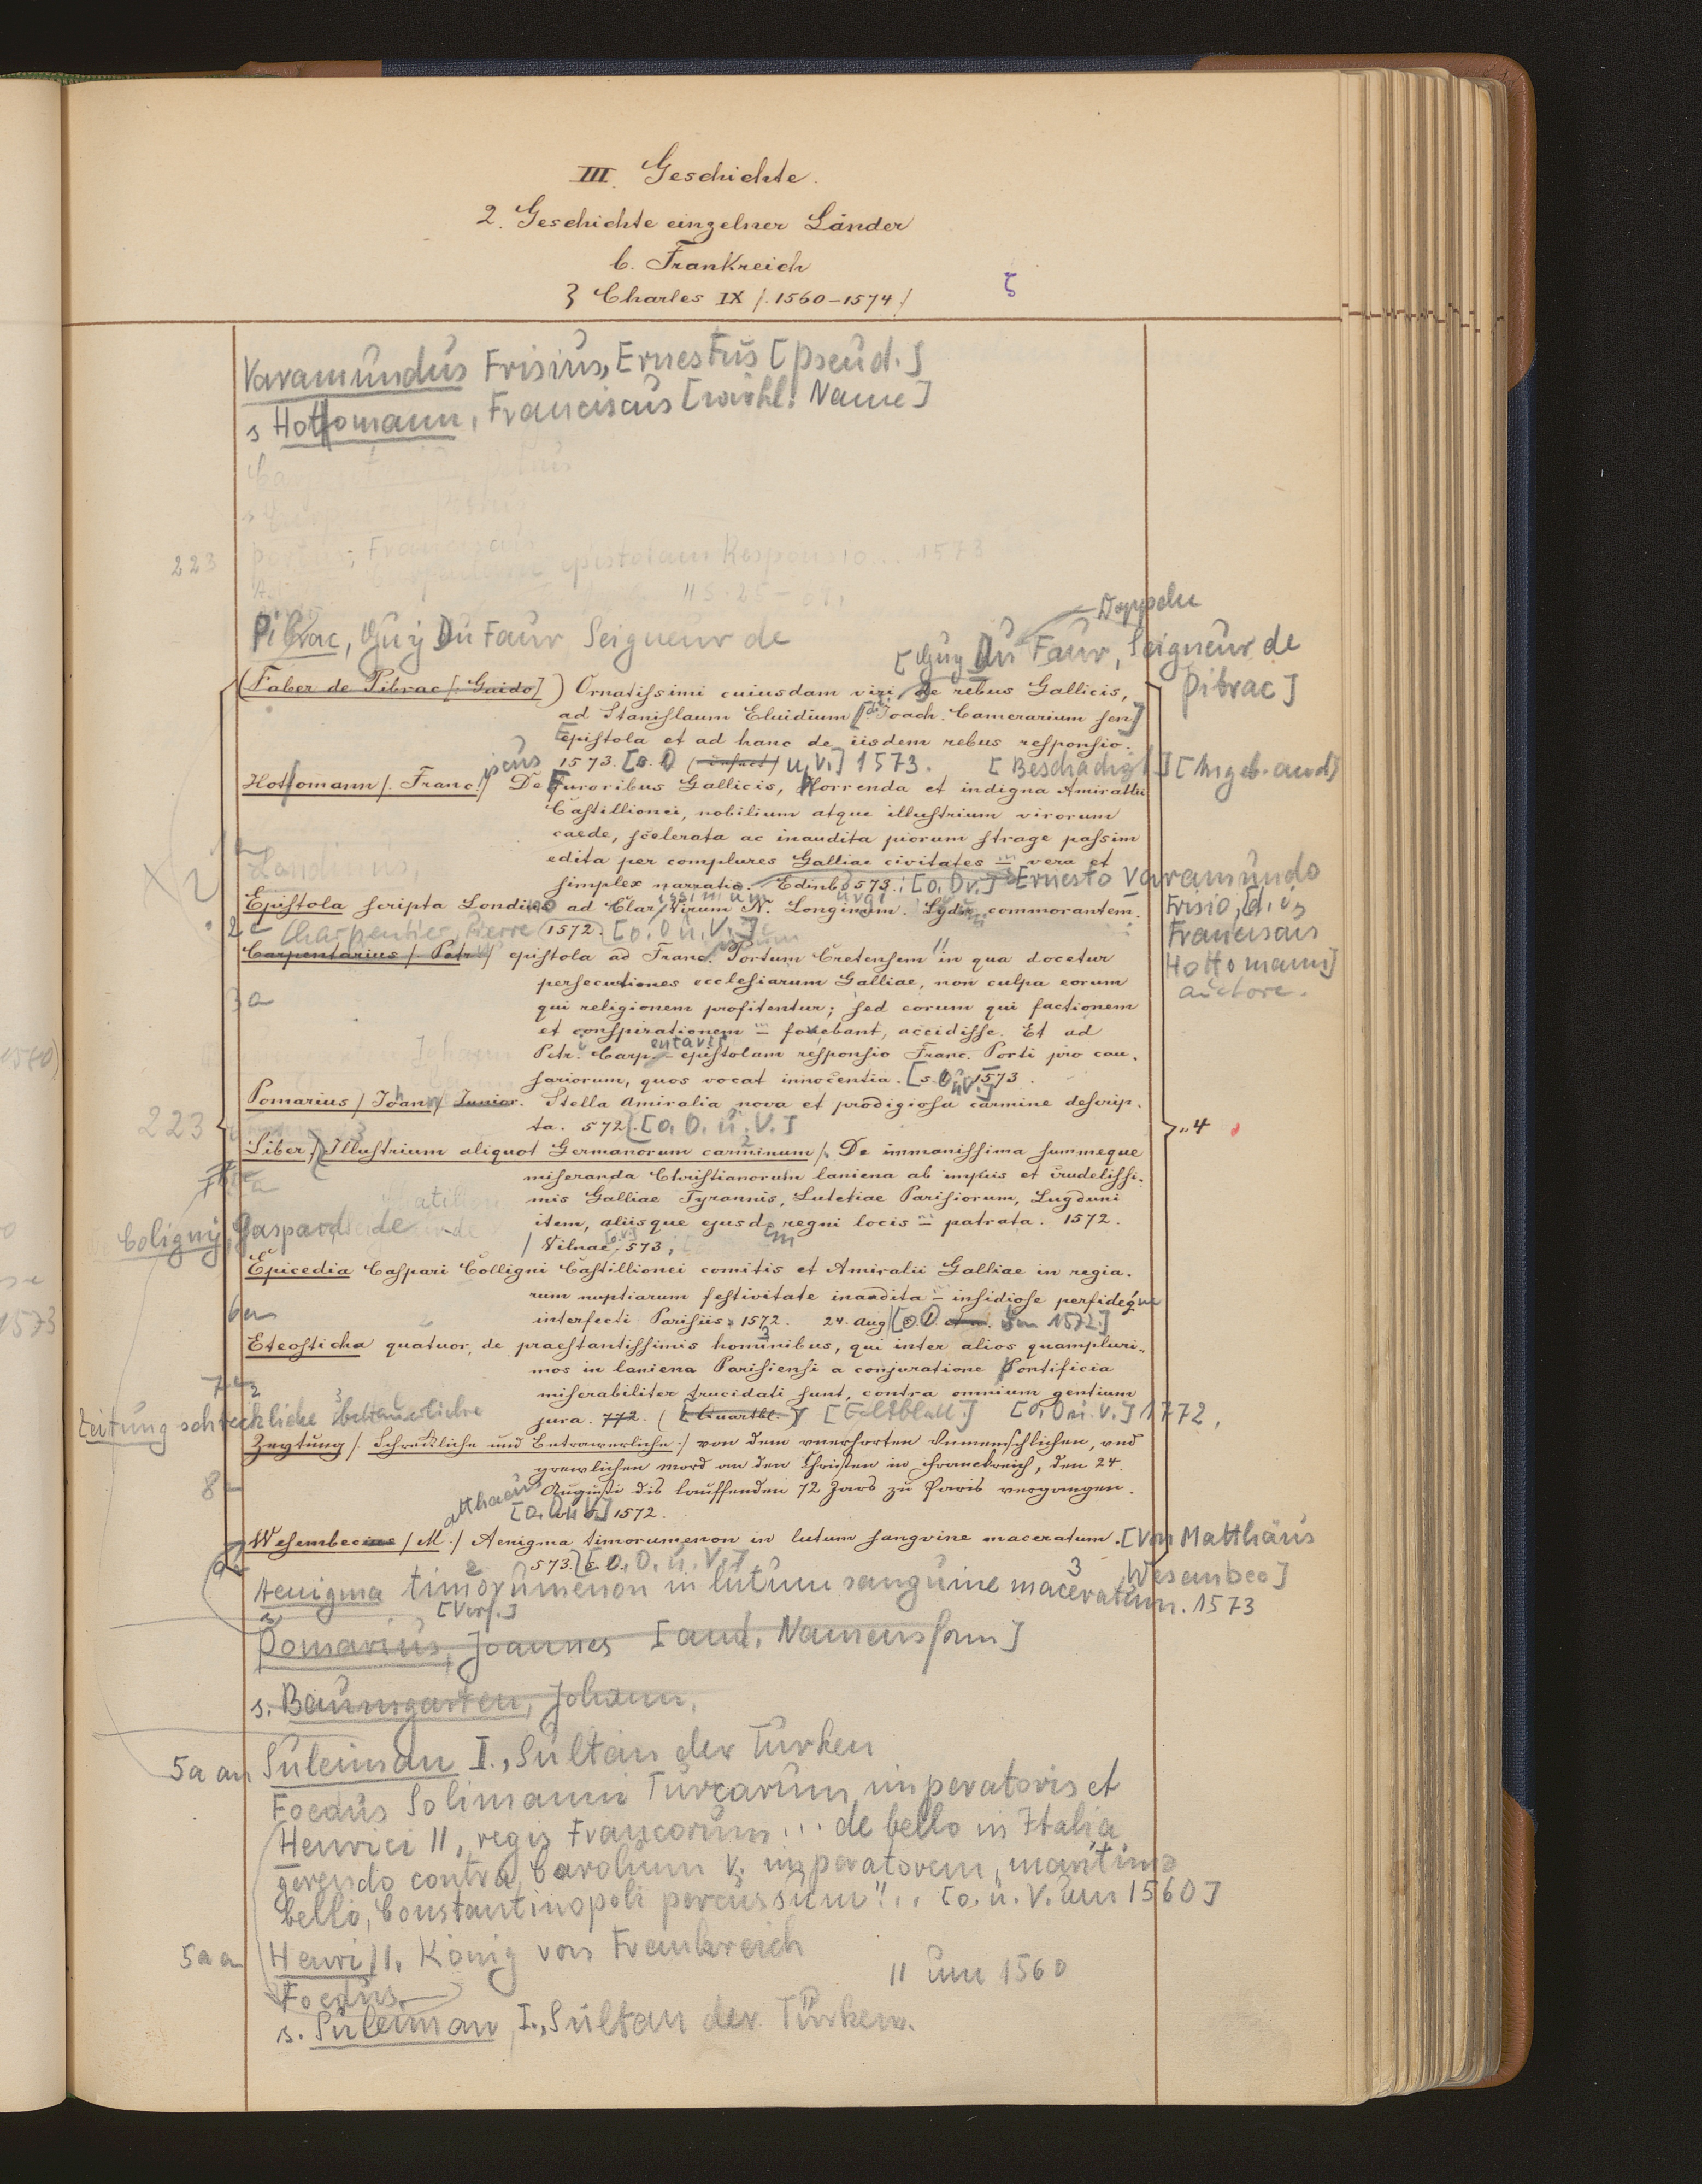 III. Geschichte.
2. Geschichte einzelner Länder
b. Frankreich
ζ Charles IX /. 1560-1574 /
ζ
Varamundus Frisius, Ernestus [Pseud.]
s Hottomann, Franciscus [wirkl. Name]
223 Portus, Franciscus
epistolam Responsio... 1573
Doppelu
Pibrac, Guy Du Faur Seigneur de
[Guy Du Faur, Seigneur de Pibrac]
(Faber de Pibrac [: Guido]) Ornatissimi cuiusdam viri, De rebus Gallicis,
ad Stanislaum Eluidium [d.i. Joach. Camerarium sen]
Epistola et ad hanc de iisdem rebus responsio.
1573. [o. O u. V.] 1573. [Beschädigt.] [Angeb. and]
Hottomann /. Franciscus De Furoribus Gallicis, Horrenda et indigna Amirallii
Castillionei, nobilium atque illustrium virorum
caede, scelerata ac inaudita piorum strage passim
edita per complures Galliae civitates = vera et
simplex narratio. Edinb. 573. [o. Dr.] Ernesto Varamundo
Frisio, [d. i.
Franciscus
Hottomann]
auctore.
Landinus,
Epistola scripta Londino ad Clarissimum Virum N. Longinum. Lyduni commorantem.
2 Charpentier, Pierre (1572) [o. O u. V.]
Carpentarius / Petr. / epistola ad Franc. Portum Cretensem in qua docetur
persecutiones ecclesiarum Galliae, non culpa eorum
3a qui religionem profitentur; sed eorum qui factionem
et conspirationem = fovebant, accidisse. Et ad
Petri Carpentarii epistolam responsio Franc. Porti pro cau-
sariorum, quos vocat innocentia. [s. O. u. V.] 1573.
Pomarius / Johann / Junior. Stella Amiralia nova et prodigiosa carmine descrip-
223 ta. 572. [o. O. u. V.] „4
Liber / Illustrium aliquot Germanorum carminum /. De immanissima summeque
miseranda Christianorum laniena ab impiis et crudelissi-
mis Galliae Tyrannis, Lutetiae Parisiorum, Lugduni
item, aliisque ejusdem regni locis = patrata. 1572.
Coligny, Gaspard de
/ Vilnae, 573;
Epicedia Caspari Colligni Castillionei comitis et Amiralii Galliae in regia-
rum nuptiarum festivitate inaudita = insidiose perfideque
6a interfecti Parisiis 1572. 24. Aug. [o. O um 1572.]
Eteosticha quatuor, de praestantissimis hominibus, qui inter alios quampluri-
mos in laniena Parisiensi a conjuratione Pontificia
7a miserabiliter trucidati sunt, contra omnium gentium
jura. 772. ([Quartbl.]) [Faltblatt.] [o. O u. V.] 1772.
Zeitung schreckliche betrauerliche
Zeytung /. Schreckliche und Betrawerliche :/ von dem vnerhorten Vnmenschlichen, vnd
grewlichen mord an den Christen in Franckreich, den 24.
8 Augusti dis lauffenden 72 Jars zu Paris vergangen.
[o. O u. V.] 1572.
Wesembecius / Matthaeus / Aenigma timorumenon in lutum sangvine maceratum. [Von Matthäus
Wesenbec]
9 573. [o. O. u. V.]
Aenigma timorumenon in lutum sanguine maceratum. 1573
[Verf.]
Pomarius, Joannes [and. Namensform]
s. Baumgarten, Johann,
5a an Suleiman I., Sultan der Türken
Foedus Solimanni Turcarum imperatoris et
Henrici II, regis Francorum ... de bello in Italia
gerendo contra Carolum V. imperatorem, maritimo
bello, Constantinopoli percussum ... [o. u. V. um 1560]
5a a Henri II, König von Frankreich
Foedus. II um 1560
s. Suleiman I., Sultan der Türken.